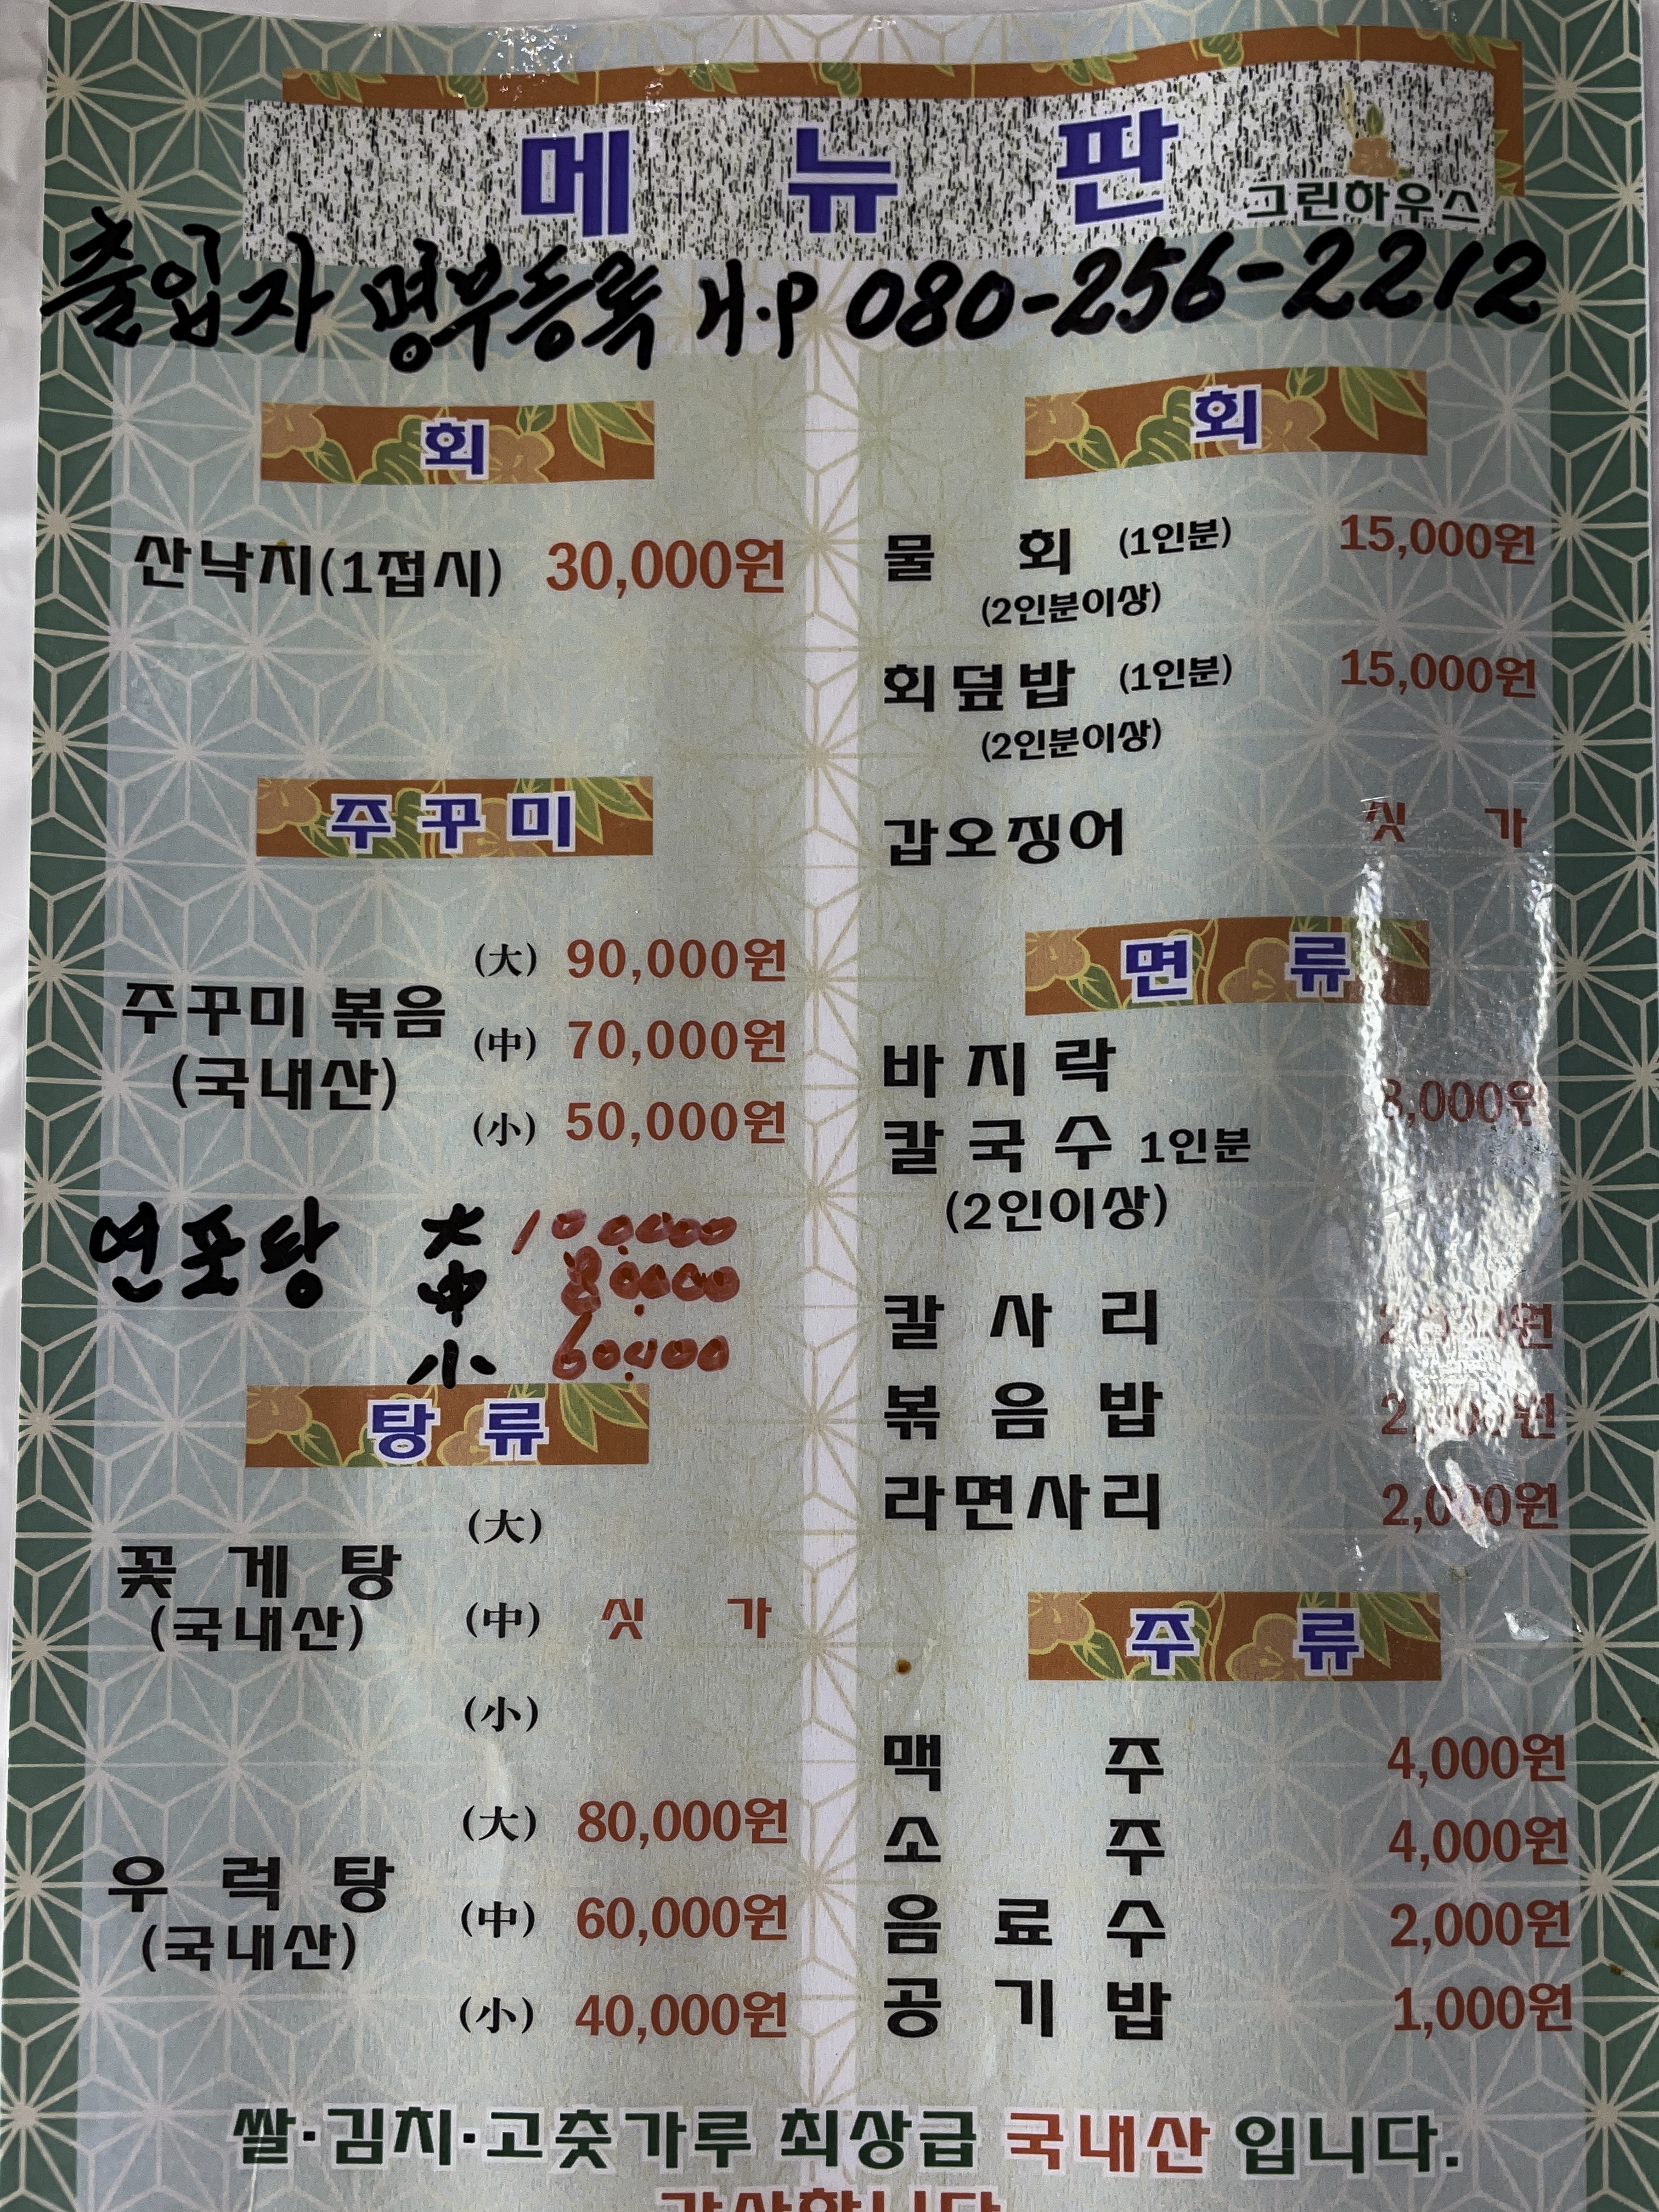 메뉴판
그린하우스
출입자 명부등록 H.P 080-256-2212
회
산낙지(1접시) 30,000원
주꾸미
주꾸미 볶음
(국내산)
(大) 90,000원
(中) 70,000원
(小) 50,000원
연포탕 大 100,000
中 80,000
小 60,000
탕류
꽃게탕
(국내산)
(大)
(中) 싯가
(小)
우럭탕
(국내산)
(大) 80,000원
(中) 60,000원
(小) 40,000원
회
물회 (1인분) 15,000원
(2인분이상)
회덮밥 (1인분) 15,000원
(2인분이상)
갑오징어 싯가
면류
바지락
칼국수 1인분
(2인이상)
칼사리
볶음밥
라면사리 2,000원
주류
맥주 4,000원
소주 4,000원
음료수 2,000원
공기밥 1,000원
쌀·김치·고춧가루 최상급 국내산 입니다.